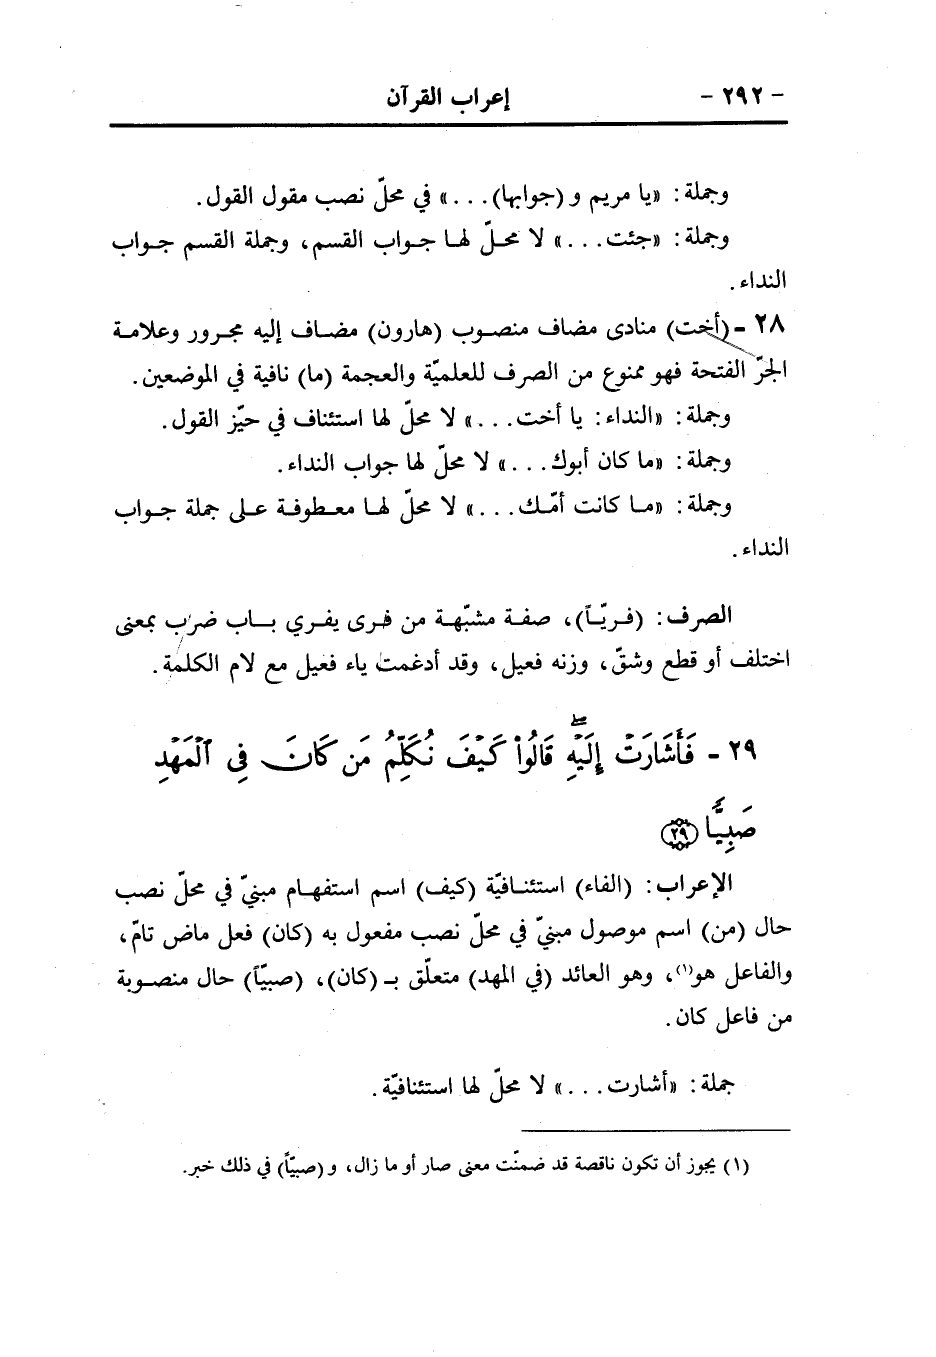 - ٢٩٢ - إعراب القرآن
وجملة: «يا مريم و (جوابها). . .» في محلّ نصب مقول القول.
وجملة: «جئت. . .» لا محلّ لها جواب القسم، وجملة القسم جواب
النداء.
٢٨ - (أخت) منادى مضاف منصوب (هارون) مضاف إليه مجرور وعلامة
الجرّ الفتحة فهو ممنوع من الصرف للعلميّة والعجمة (ما) نافية في الموضعين.
وجملة: «النداء: يا أخت. . .» لا محلّ لها استئناف في حيّز القول.
وجملة: «ما كان أبوك. . .» لا محلّ لها جواب النداء.
وجملة: «ما كانت أمّك. . .» لا محلّ لها معطوفة على جملة جواب
النداء.
الصرف: (فريّاً)، صفة مشبّهة من فرى يفري باب ضرب بمعنى
اختلف أو قطع وشقّ، وزنه فعيل، وقد أدغمت ياء فعيل مع لام الكلمة.
٢٩ - فَأَشَارَتْ إِلَيْهِ ۖ قَالُوا۟ كَيْفَ نُكَلِّمُ مَن كَانَ فِى ٱلْمَهْدِ
صَبِيًّا ﴿٢٩﴾
الإعراب: (الفاء) استئنافيّة (كيف) اسم استفهام مبنيّ في محلّ نصب
حال (من) اسم موصول مبنيّ في محلّ نصب مفعول به (كان) فعل ماض تامّ،
والفاعل هو(١)، وهو العائد (في المهد) متعلّق بـ (كان)، (صبيّاً) حال منصوبة
من فاعل كان.
جملة: «أشارت. . .» لا محلّ لها استئنافيّة.
(١) يجوز أن تكون ناقصة قد ضمنّت معنى صار أو ما زال، و (صبيّاً) في ذلك خبر.